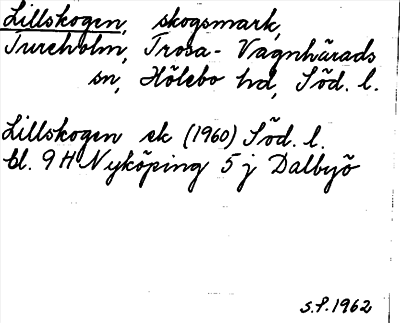 Lillskogen, skogsmark,
Tureholm, Trosa-Vagnhärads
sn, Hölebo hd, Söd. l.
Lillskogen ek (1960) Söd. l.
bl. 9H Nyköping 5 j Dalbyö
S.P. 1962